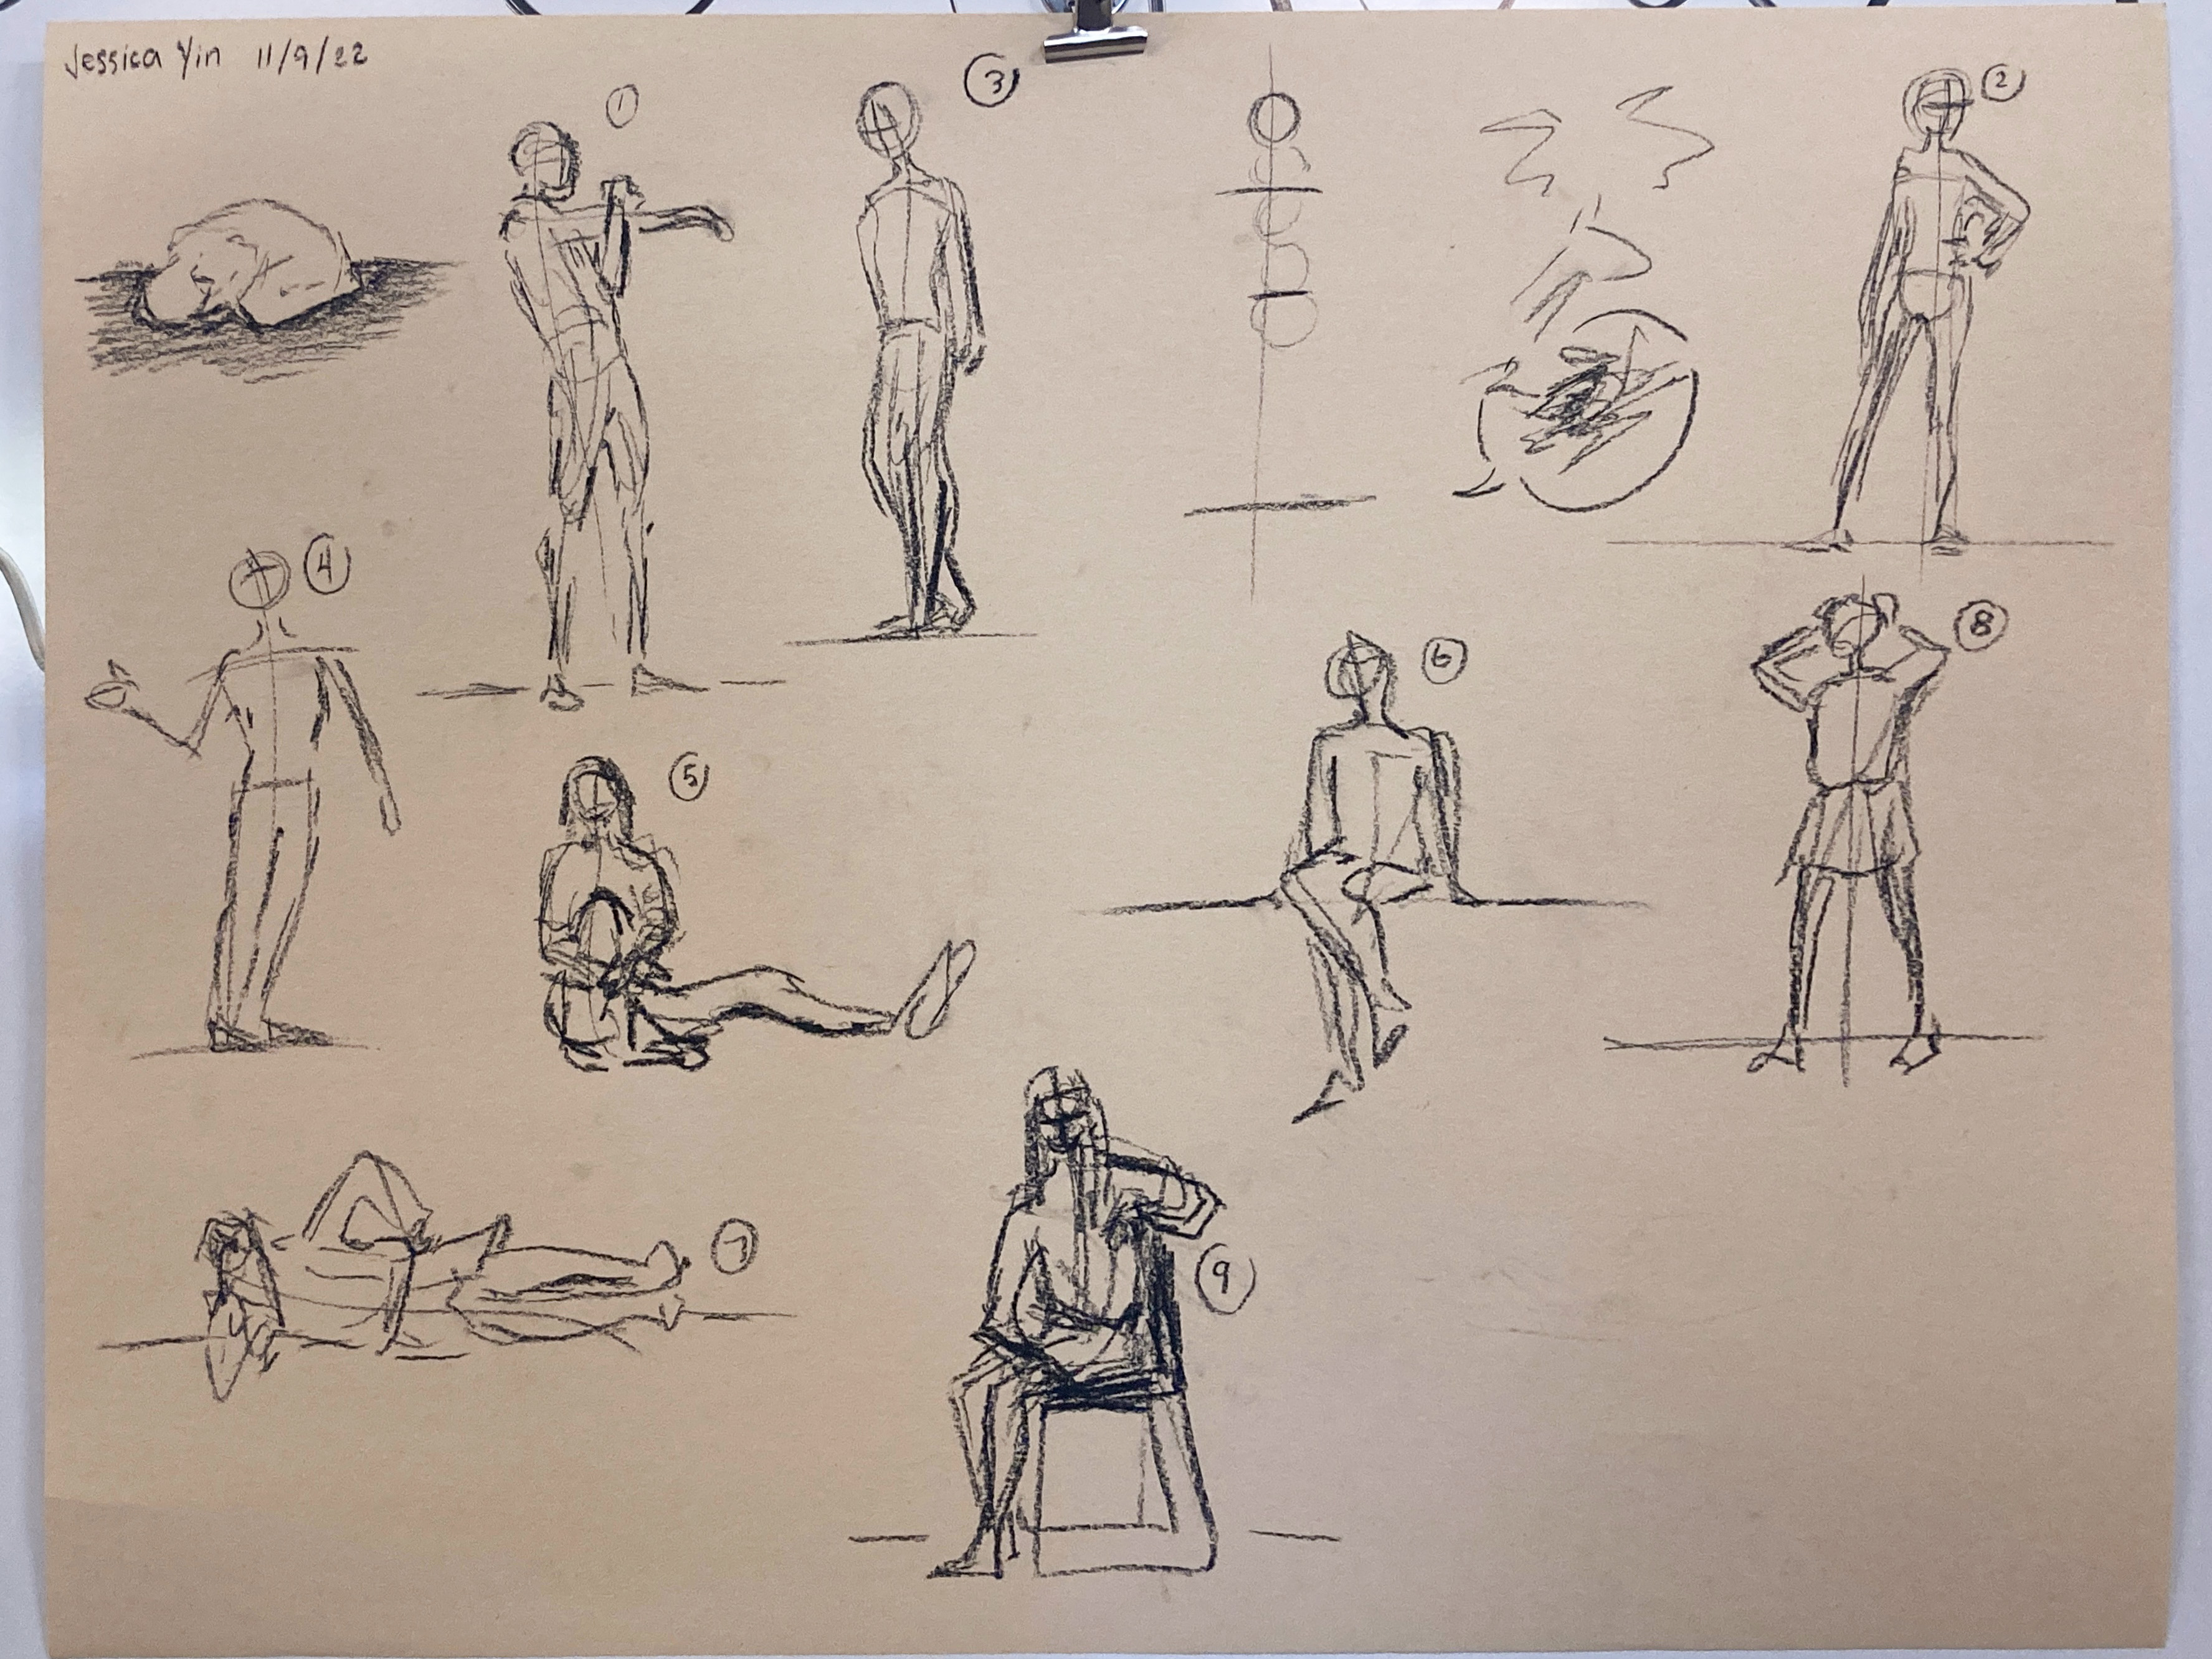 Jessica Yin 11/9/22
1
3
2
4
6
8
5
7
9